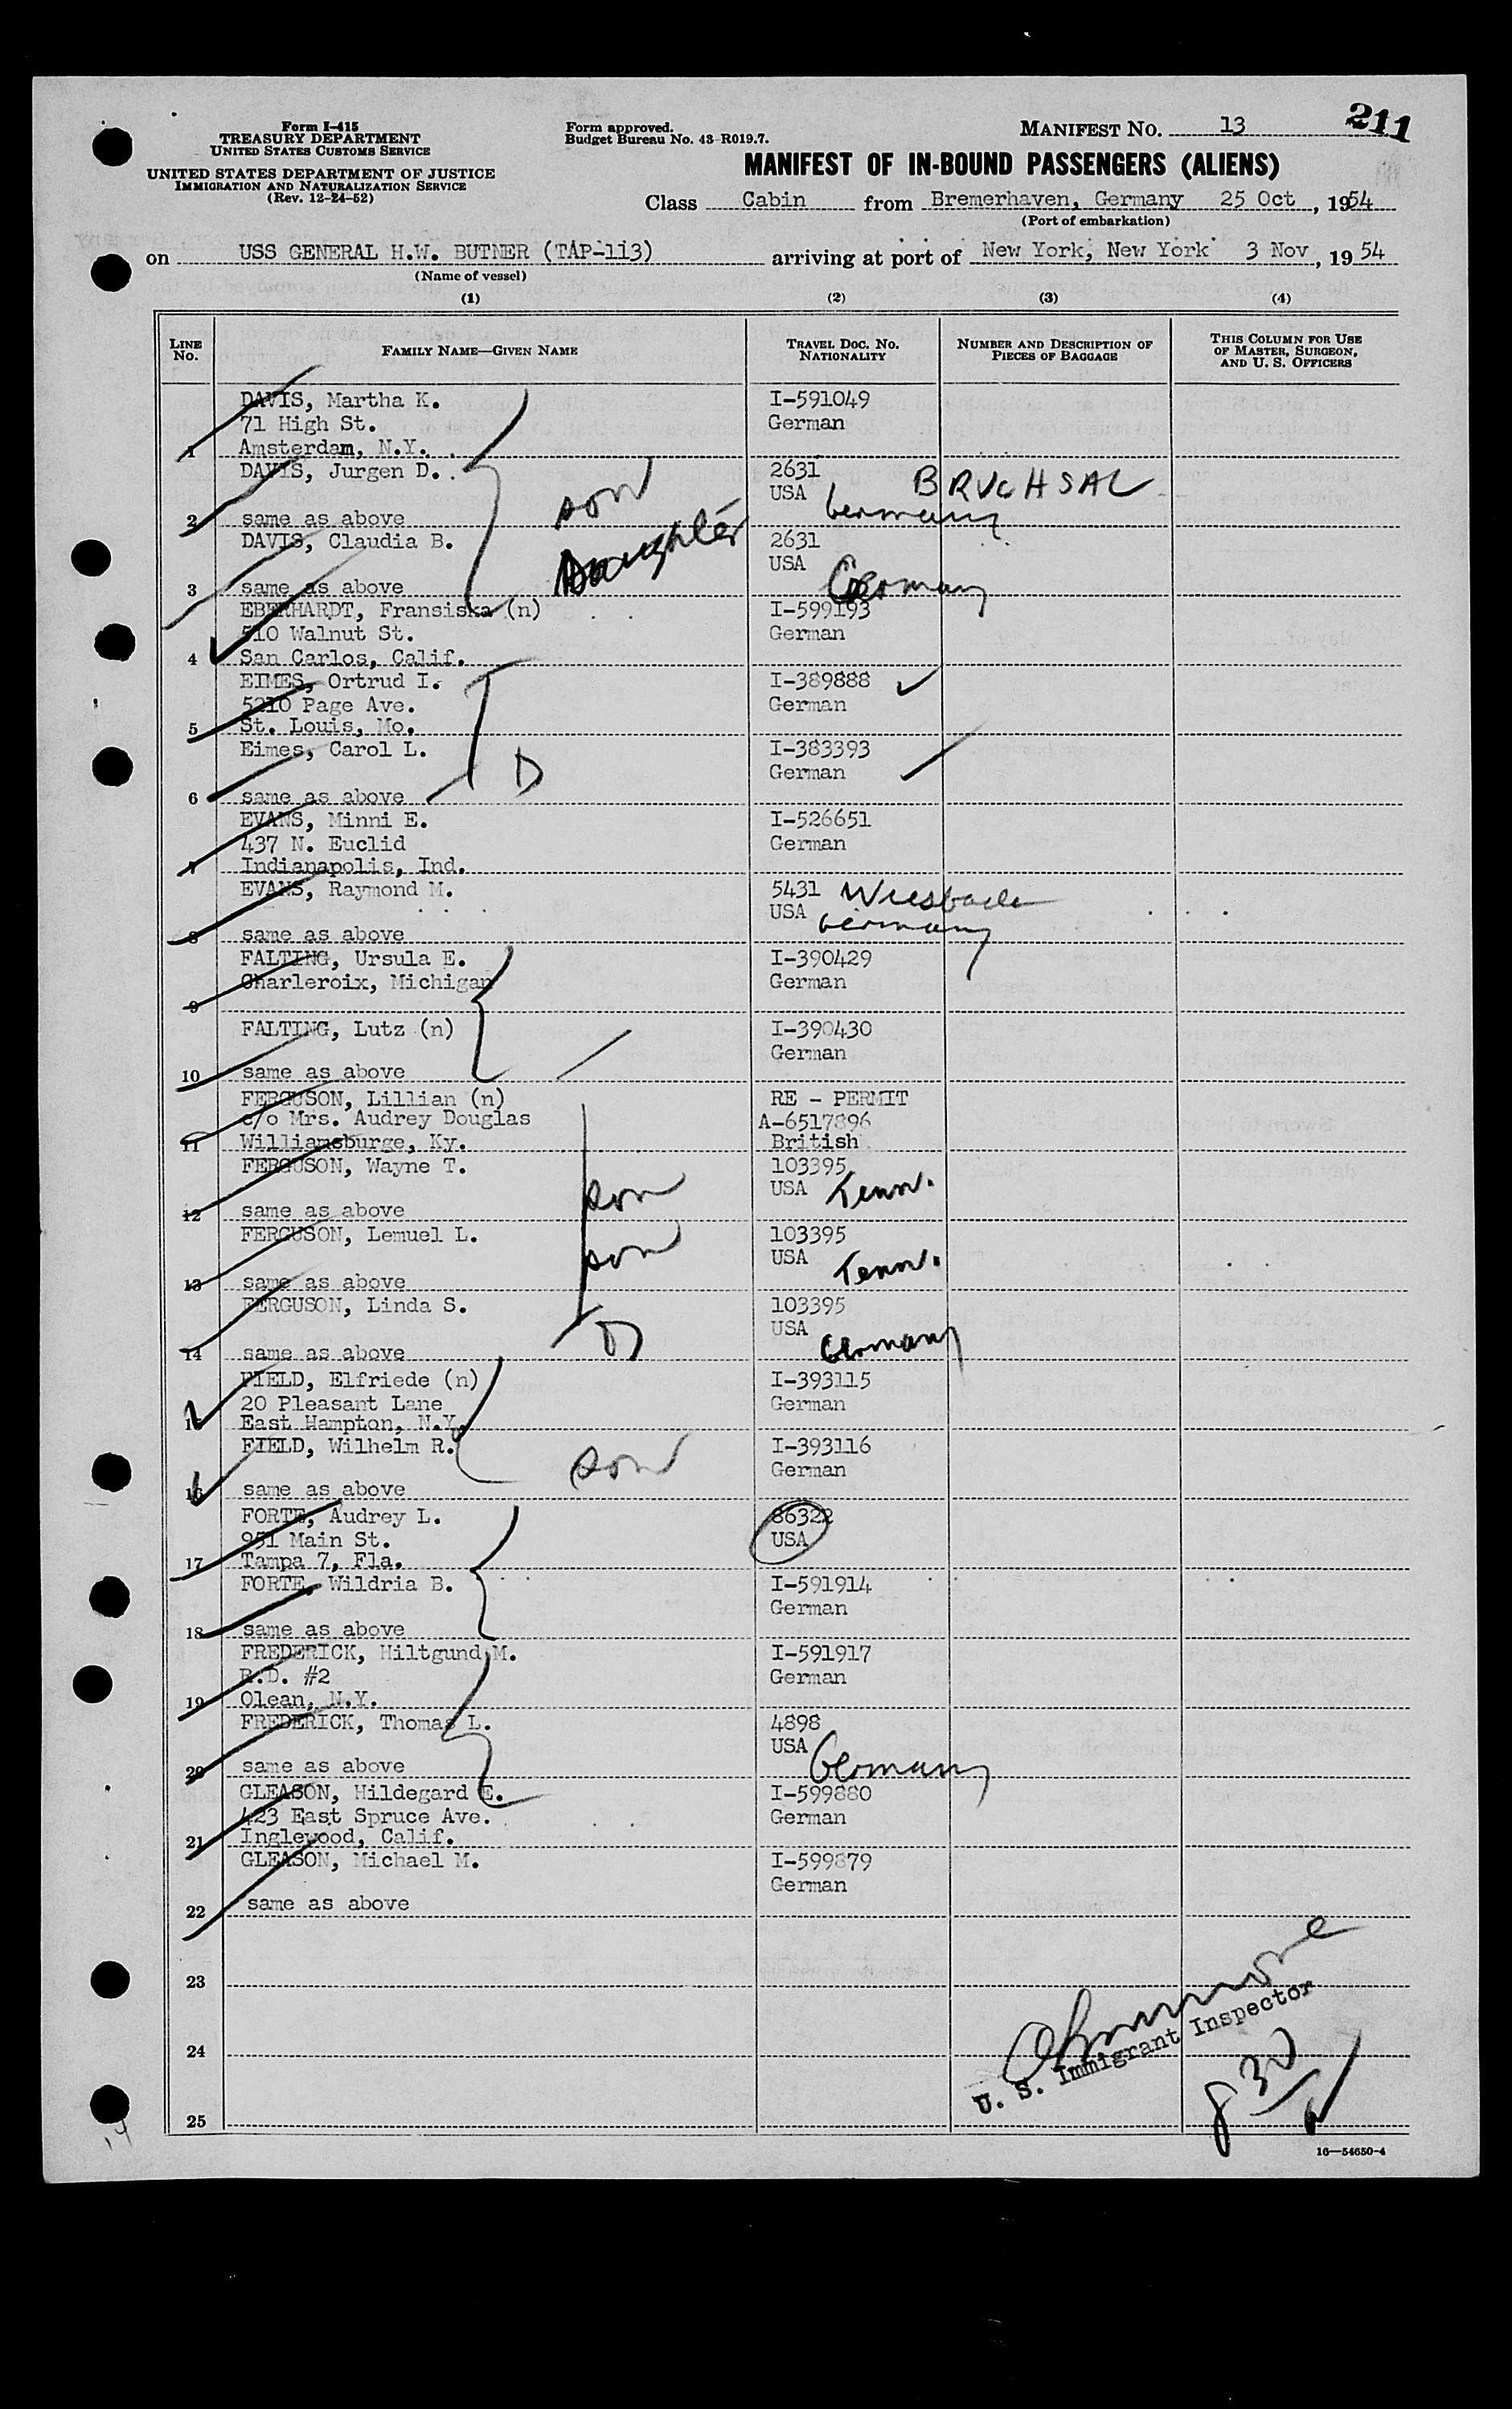 Form I-415
TREASURY DEPARTMENT
UNITED STATES CUSTOMS SERVICE
UNITED STATES DEPARTMENT OF JUSTICE
IMMIGRATION AND NATURALIZATION SERVICE
(Rev. 12-24-52)
Form approved.
Budget Bureau No. 43-R019.7.
MANIFEST NO. 13
211
MANIFEST OF IN-BOUND PASSENGERS (ALIENS)
Class Cabin from Bremerhaven, Germany 25 Oct, 1954
(Port of embarkation)
on USS GENERAL H.W. BUTNER (TAP-113) arriving at port of New York, New York 3 Nov, 1954
(Name of vessel)
(1) (2) (3) (4)
LINE NO. FAMILY NAME—GIVEN NAME TRAVEL DOC. NO. NATIONALITY NUMBER AND DESCRIPTION OF PIECES OF BAGGAGE THIS COLUMN FOR USE OF MASTER, SURGEON, AND U. S. OFFICERS
DAVIS, Martha K. I-591049
71 High St. German
1 Amsterdam, N.Y.
DAVIS, Jurgen D. 2631
son USA BRUCHSAL
2 same as above Germany
DAVIS, Claudia B. 2631
Daughter USA
3 same as above Germany
EBERHARDT, Fransiska (n) I-599193
510 Walnut St. German
4 San Carlos, Calif.
EIMES, Ortrud I. I-389888
5210 Page Ave. German
5 St. Louis, Mo.
Eimes, Carol L. I-383393
D German
6 same as above
EVANS, Minni E. I-526651
437 N. Euclid German
7 Indianapolis, Ind.
EVANS, Raymond M. 5431 Wiesbaden
USA Germany
8 same as above
FALTING, Ursula E. I-390429
Charleroix, Michigan German
9
FALTING, Lutz (n) I-390430
German
10 same as above
FERGUSON, Lillian (n) RE - PERMIT
c/o Mrs. Audrey Douglas A-6517896
11 Williamsburge, Ky. British
FERGUSON, Wayne T. 103395
son USA Tenn.
12 same as above
FERGUSON, Lemuel L. 103395
son USA Tenn.
13 same as above
FERGUSON, Linda S. 103395
D USA
14 same as above Germany
FIELD, Elfriede (n) I-393115
20 Pleasant Lane German
15 East Hampton, N.Y.
FIELD, Wilhelm R. I-393116
son German
16 same as above
FORTE, Audrey L. 86322
951 Main St. USA
17 Tampa 7, Fla.
FORTE, Wildria B. I-591914
German
18 same as above
FREDERICK, Hiltgund M. I-591917
R.D. #2 German
19 Olean, N.Y.
FREDERICK, Thomas L. 4898
USA Germany
20 same as above
GLEASON, Hildegard E. I-599880
423 East Spruce Ave. German
21 Inglewood, Calif.
GLEASON, Michael M. I-599879
German
22 same as above
23
24
25
U. S. Immigrant Inspector
830
16—54650-4
14